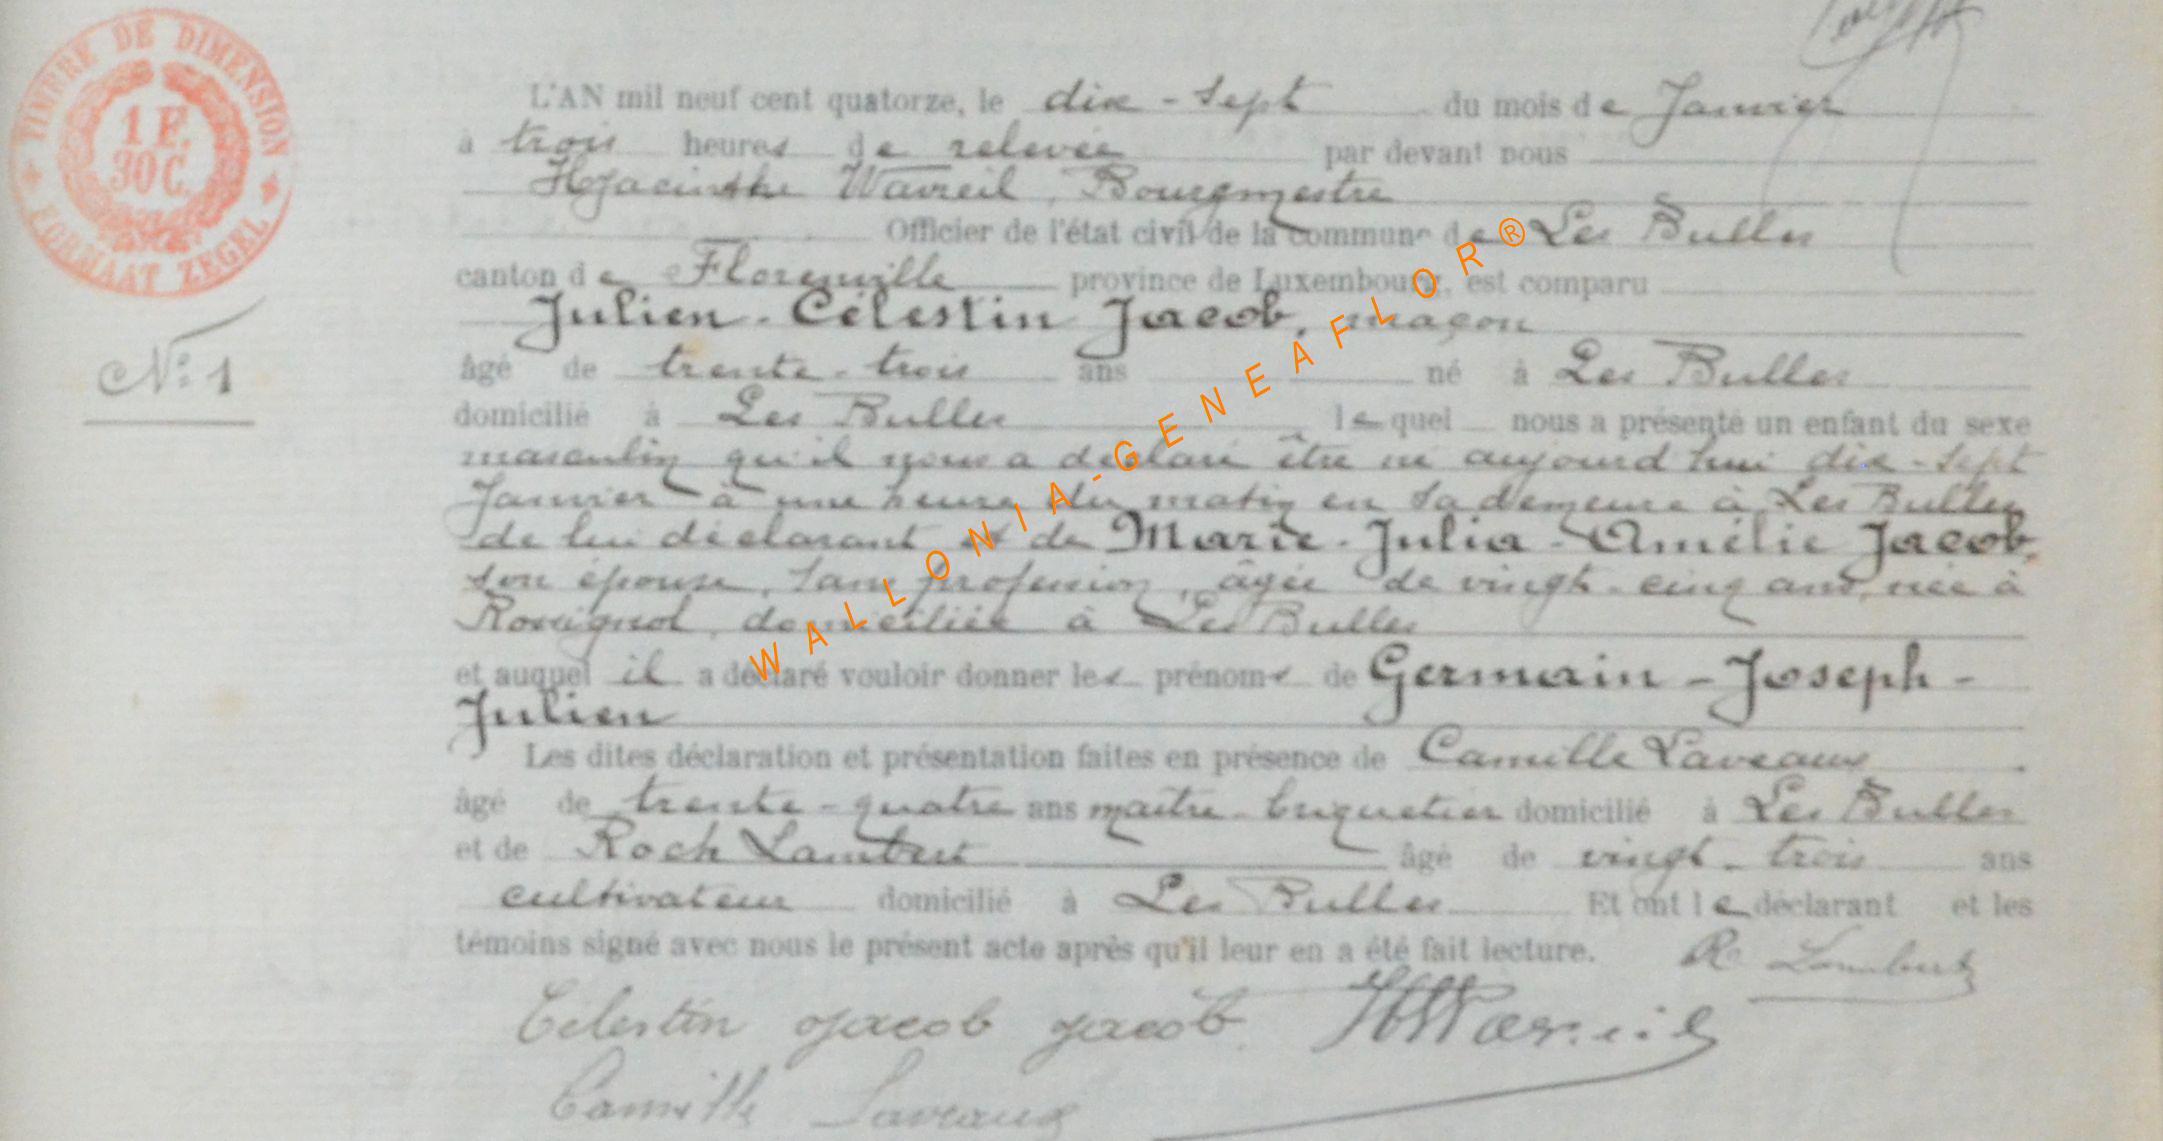 TIMBRE DE DIMENSION
1 F.
30 C.
FORMAAT ZEGEL
L'AN mil neuf cent quatorze, le dix-sept du mois de Janvier
à trois heures de relevée par devant nous
Hyacinthe Wavreil, Bourgmestre
Officier de l'état civil de la commune de Les Bulles
canton de Florenville province de Luxembourg, est comparu
Julien-Célestin Jacob, maçon
N° 1
âgé de trente-trois ans né à Les Bulles
domicilié à Les Bulles lequel nous a présenté un enfant du sexe
masculin qu'il nous a déclaré être né aujourd'hui dix-sept
Janvier à une heure du matin en sa demeure à Les Bulles
de lui déclarant et de Marie-Julia-Amélie Jacob,
son épouse, sans profession, âgée de vingt-cinq ans, née à
Rossignol, domiciliée à Les Bulles
et auquel il a déclaré vouloir donner les prénoms de Germain-Joseph-
Julien
Les dites déclaration et présentation faites en présence de Camille Laveaux
âgé de trente-quatre ans maître-briquetier domicilié à Les Bulles
et de Roch Lambert âgé de vingt-trois ans
cultivateur domicilié à Les Bulles Et ont le déclarant et les
témoins signé avec nous le présent acte après qu'il leur en a été fait lecture.
R. Lambert
Célestin Jacob Jacob HWavreil
Camille Laveaux
WALLONIA-GENEAFLOR®